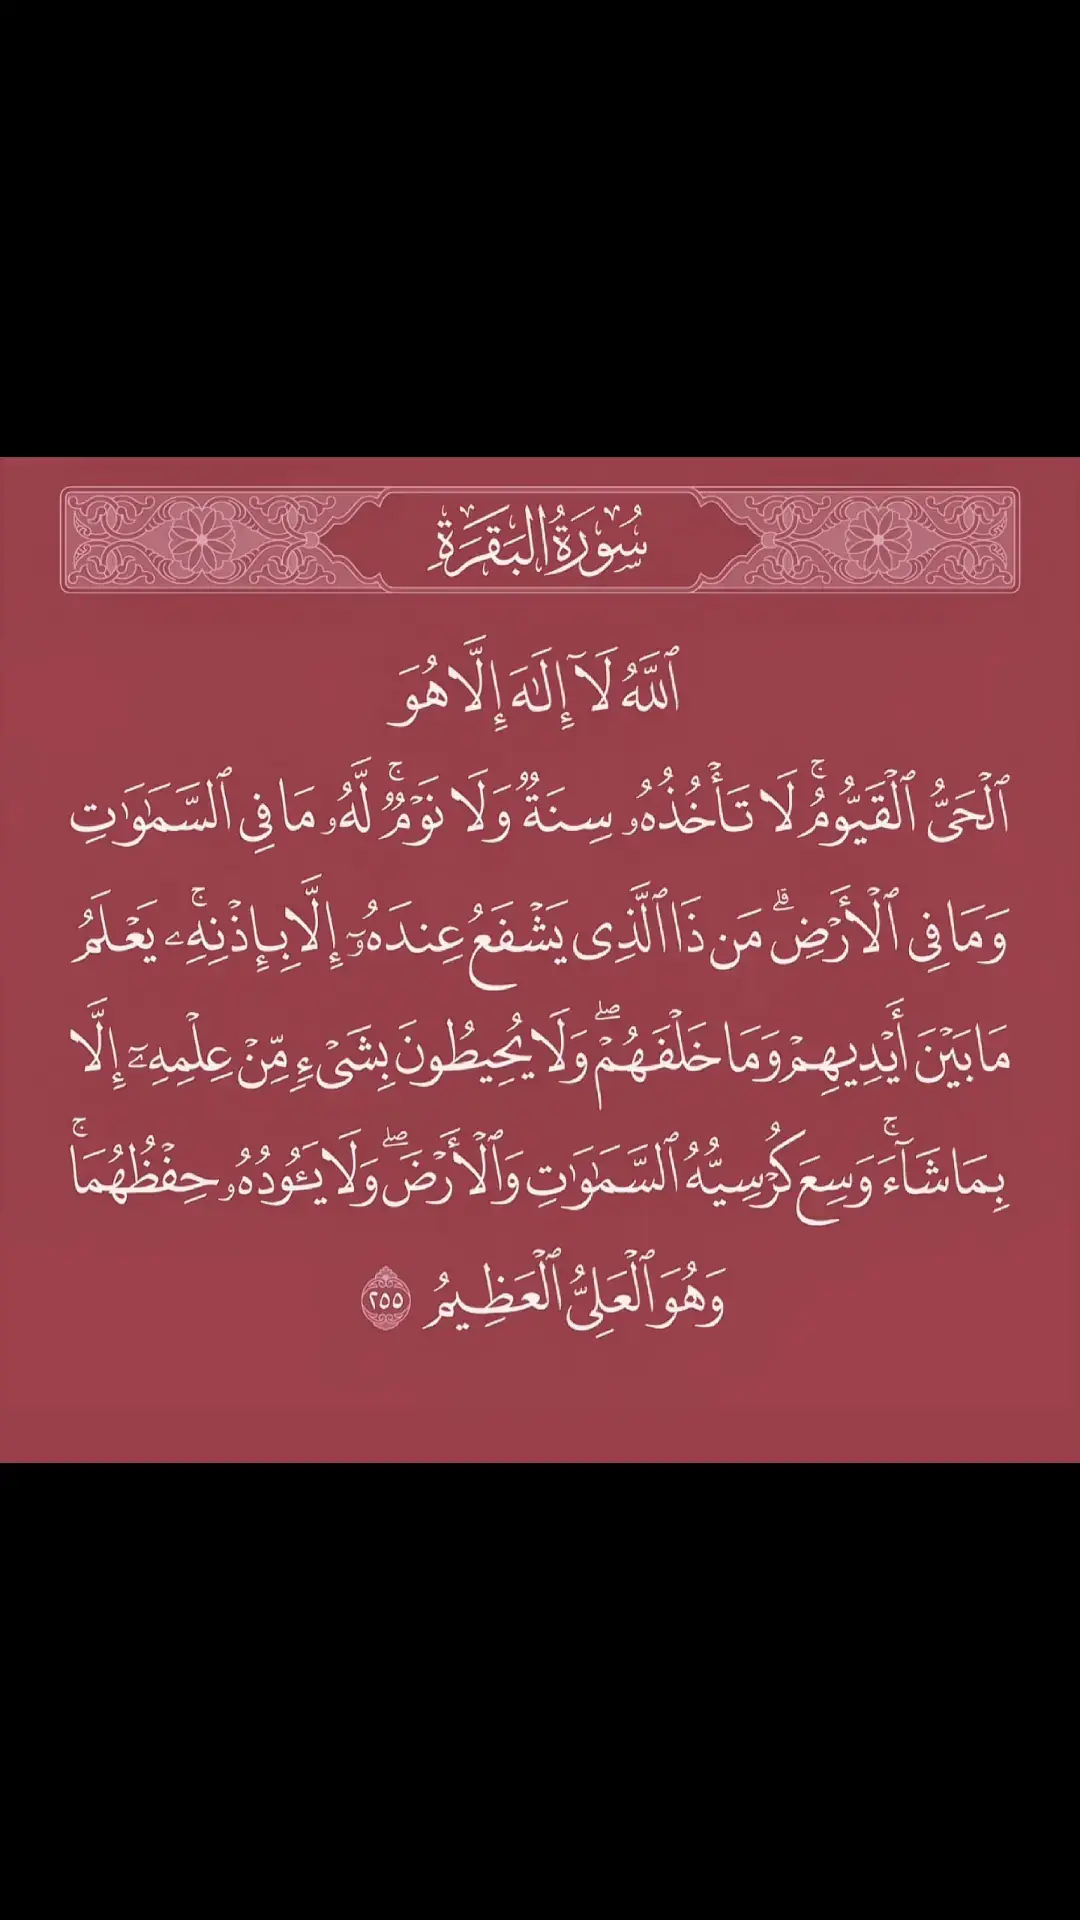 سُورَةُ البَقَرَةِ
ٱللَّهُ لَآ إِلَٰهَ إِلَّا هُوَ
ٱلْحَيُّ ٱلْقَيُّومُ ۚ لَا تَأْخُذُهُۥ سِنَةٌ وَلَا نَوْمٌ ۚ لَّهُۥ مَا فِى ٱلسَّمَٰوَٰتِ
وَمَا فِى ٱلْأَرْضِ ۗ مَن ذَا ٱلَّذِى يَشْفَعُ عِندَهُۥٓ إِلَّا بِإِذْنِهِۦ ۚ يَعْلَمُ
مَا بَيْنَ أَيْدِيهِمْ وَمَا خَلْفَهُمْ ۖ وَلَا يُحِيطُونَ بِشَىْءٍ مِّنْ عِلْمِهِۦٓ إِلَّا
بِمَا شَآءَ ۚ وَسِعَ كُرْسِيُّهُ ٱلسَّمَٰوَٰتِ وَٱلْأَرْضَ ۖ وَلَا يَـُٔودُهُۥ حِفْظُهُمَا ۚ
وَهُوَ ٱلْعَلِىُّ ٱلْعَظِيمُ ٢٥٥